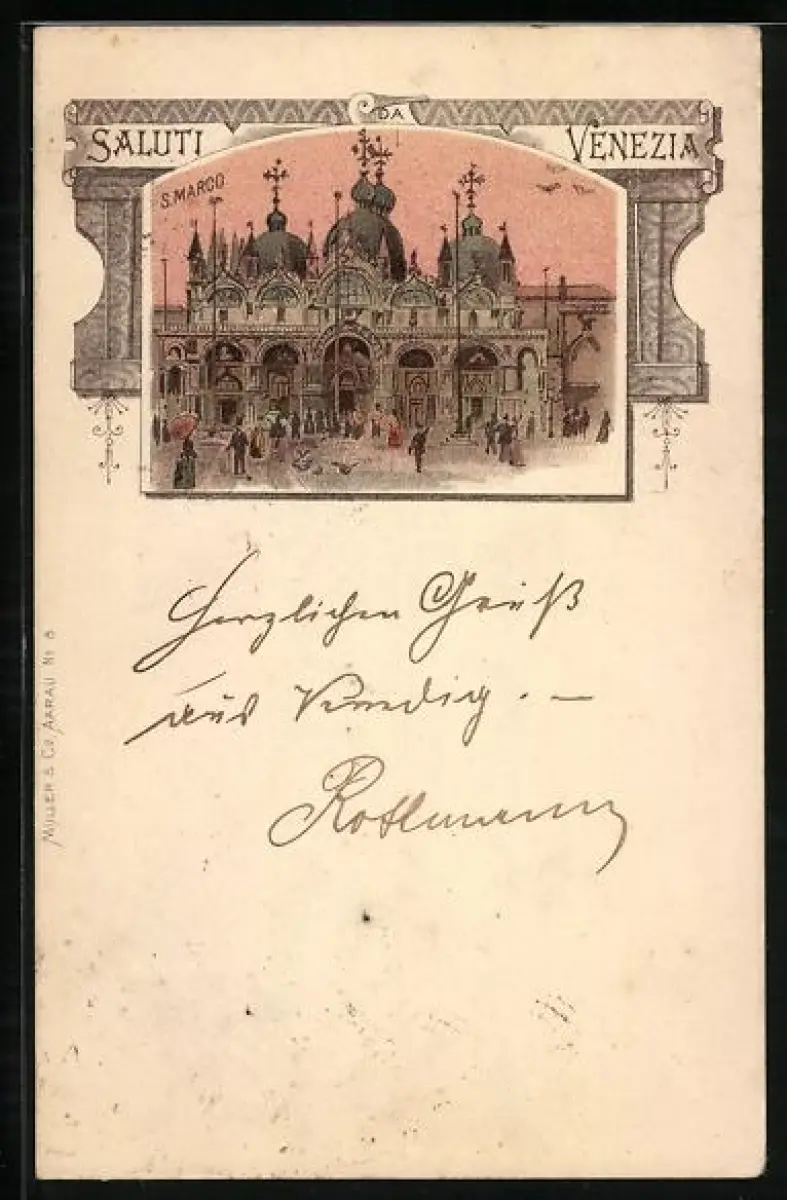 SALUTI DA VENEZIA
S. MARCO
Herzlichen Gruß
aus Venedig. —
Rothmann
MÜLLER & Co, AARAU No 8